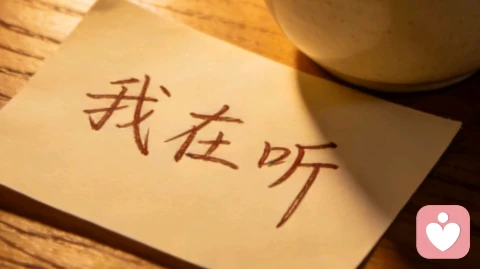 我在听